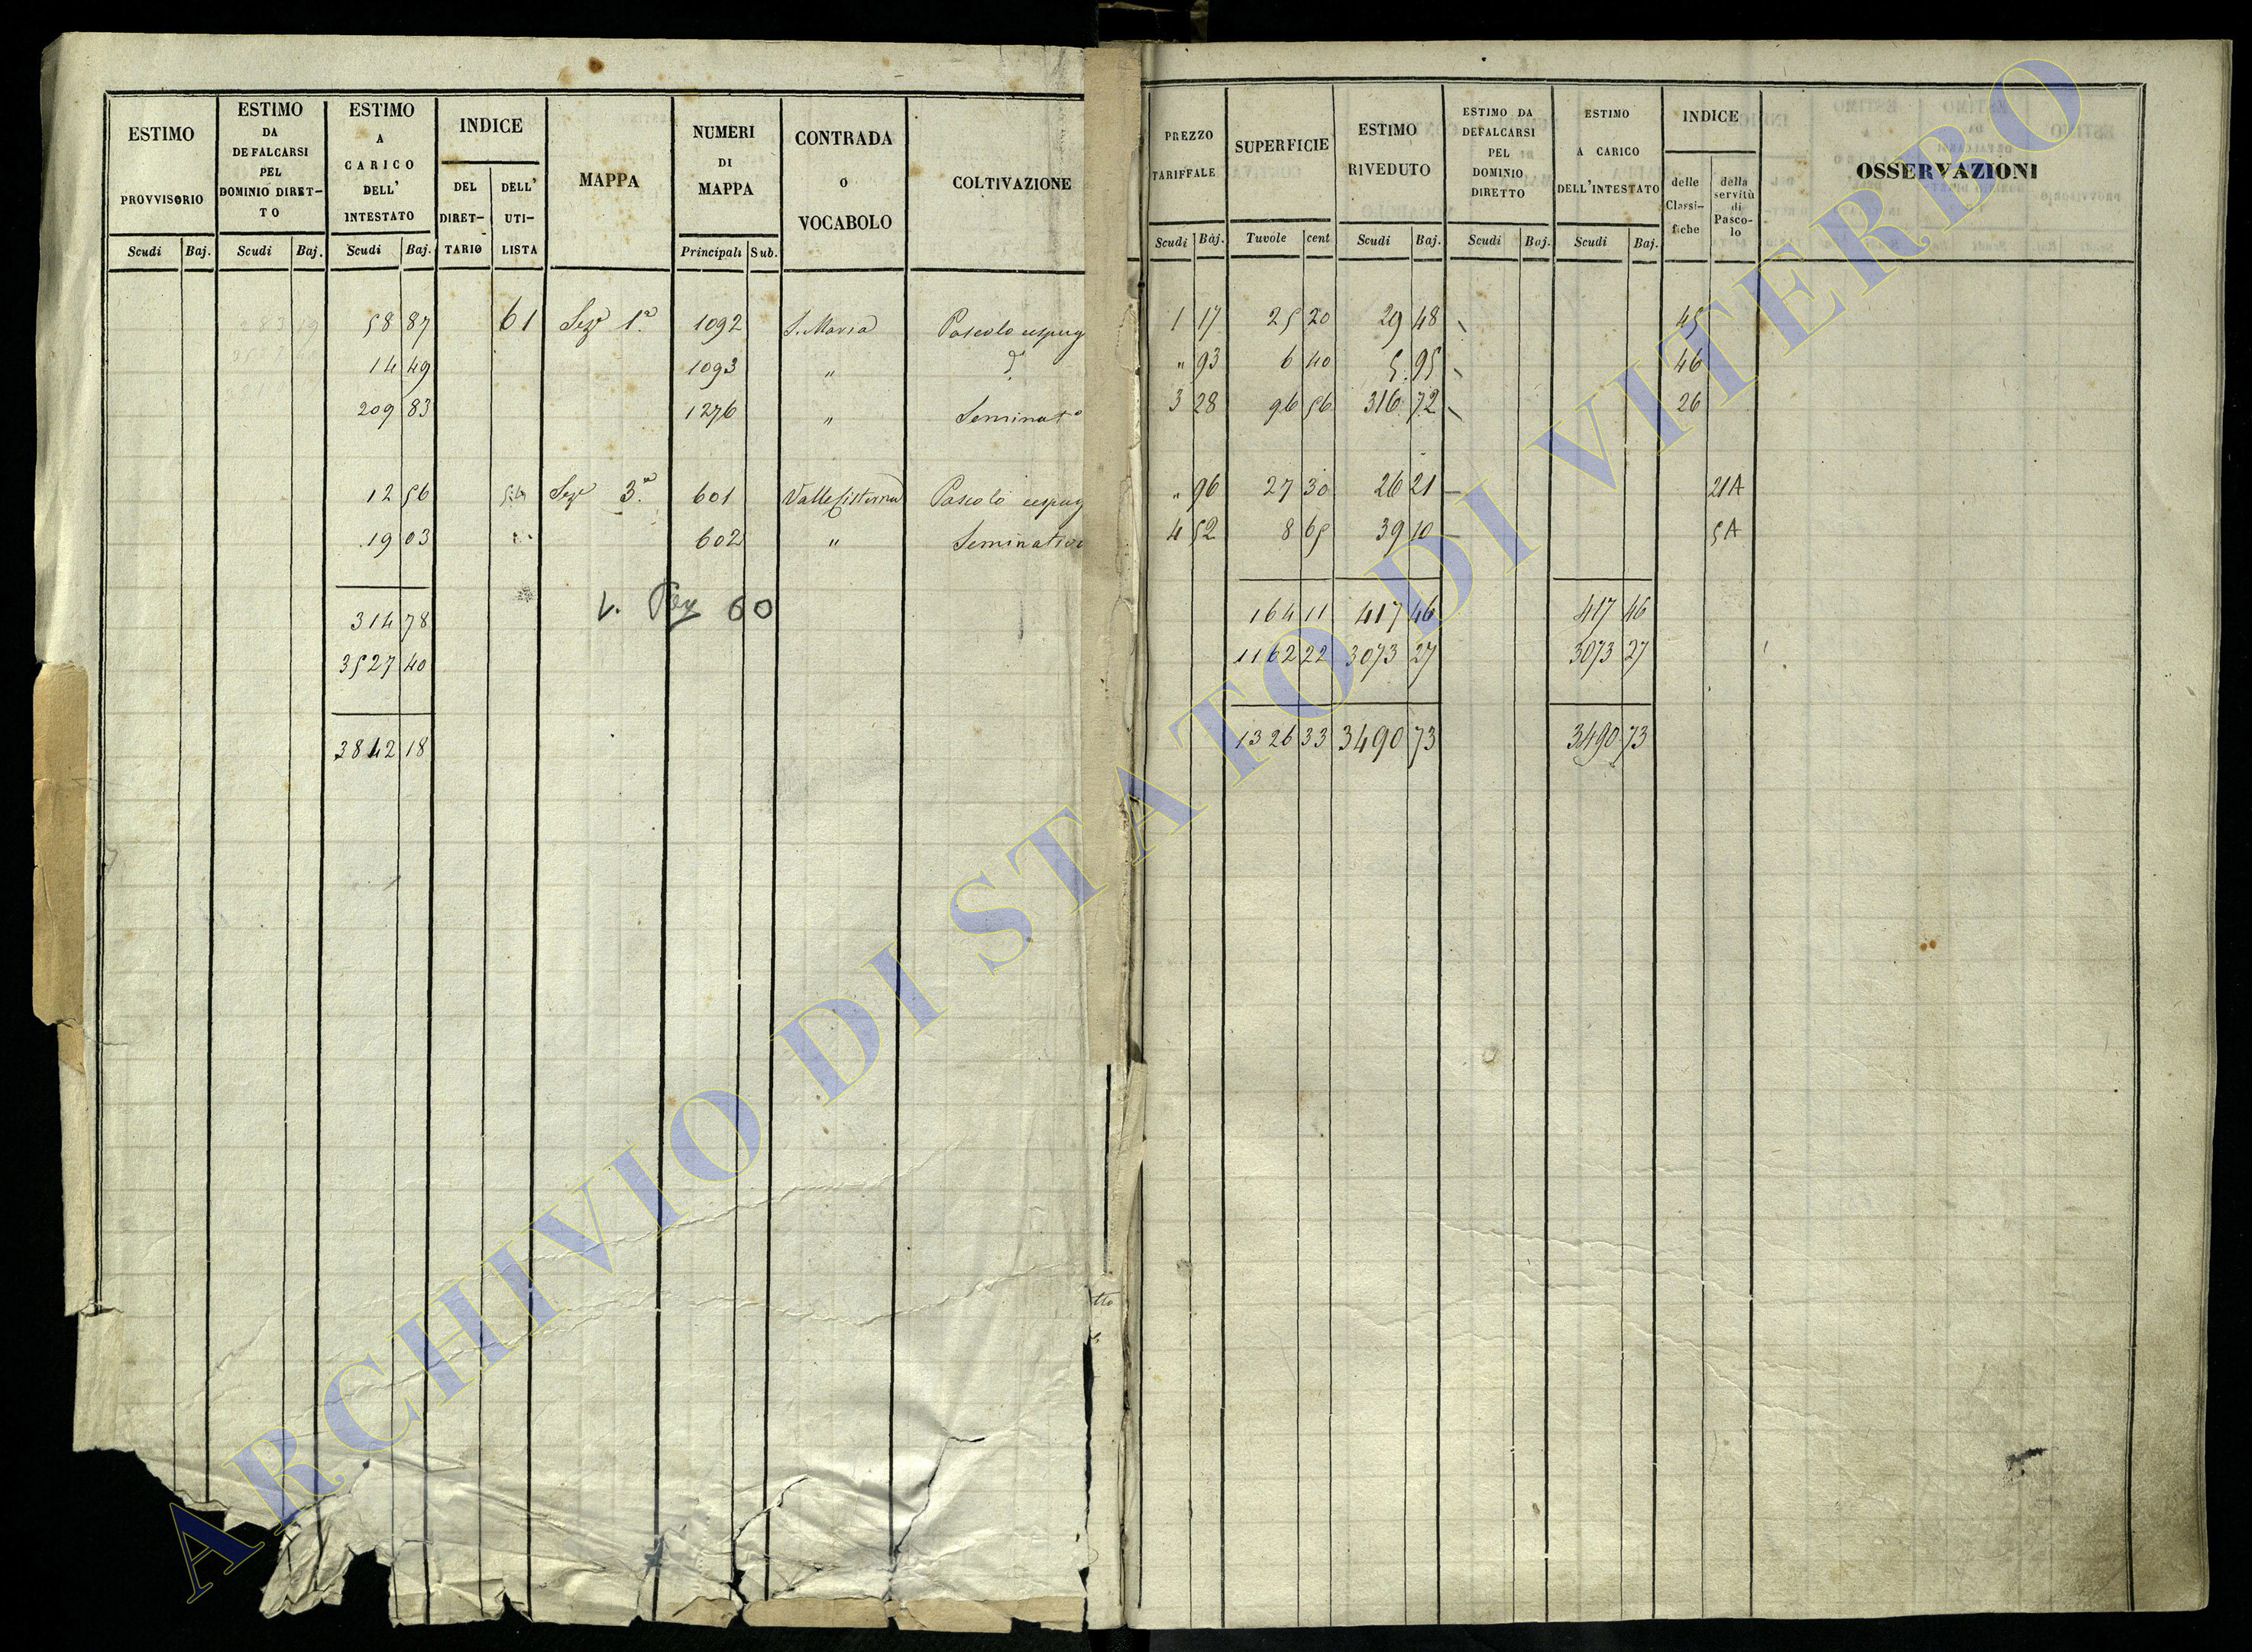 ESTIMO PROVVISORIO
ESTIMO DA DEFALCARSI PEL DOMINIO DIRET-TO
ESTIMO A CARICO DELL' INTESTATO
INDICE
DEL DIRET-TARIO
DELL' UTI-LISTA
MAPPA
NUMERI DI MAPPA
CONTRADA O VOCABOLO
COLTIVAZIONE
PREZZO TARIFFALE
SUPERFICIE
ESTIMO RIVEDUTO
ESTIMO DA DEFALCARSI PEL DOMINIO DIRETTO
ESTIMO A CARICO DELL'INTESTATO
INDICE
delle Classi-fiche
della servitù di Pasco-lo
OSSERVAZIONI
Scudi Baj. Scudi Baj. Scudi Baj. Principali Sub. Scudi Baj. Tavole cent Scudi Baj. Scudi Baj. Scudi Baj.
58 87 61 Sezᵉ 1ª 1092 S. Maria Pascolo cespug 1 17 25 20 29 48 45
14 49 1093 " " 93 6 40 5 95 46
209 83 1276 " Seminatº 3 28 96 56 316 72 26
12 56 Sezᵉ 3ª 601 Valle Cisterna Pascolo cespug " 96 27 30 26 21 21A
19 03 602 " Seminativo 4 52 8 65 39 10 5A
314 78 164 11 417 46 417 46
V. Pag 60
3527 40 1162 22 3073 27 3073 27
3842 18 1326 33 3490 73 3490 73
tto
ARCHIVIO DI STATO DI VITERBO